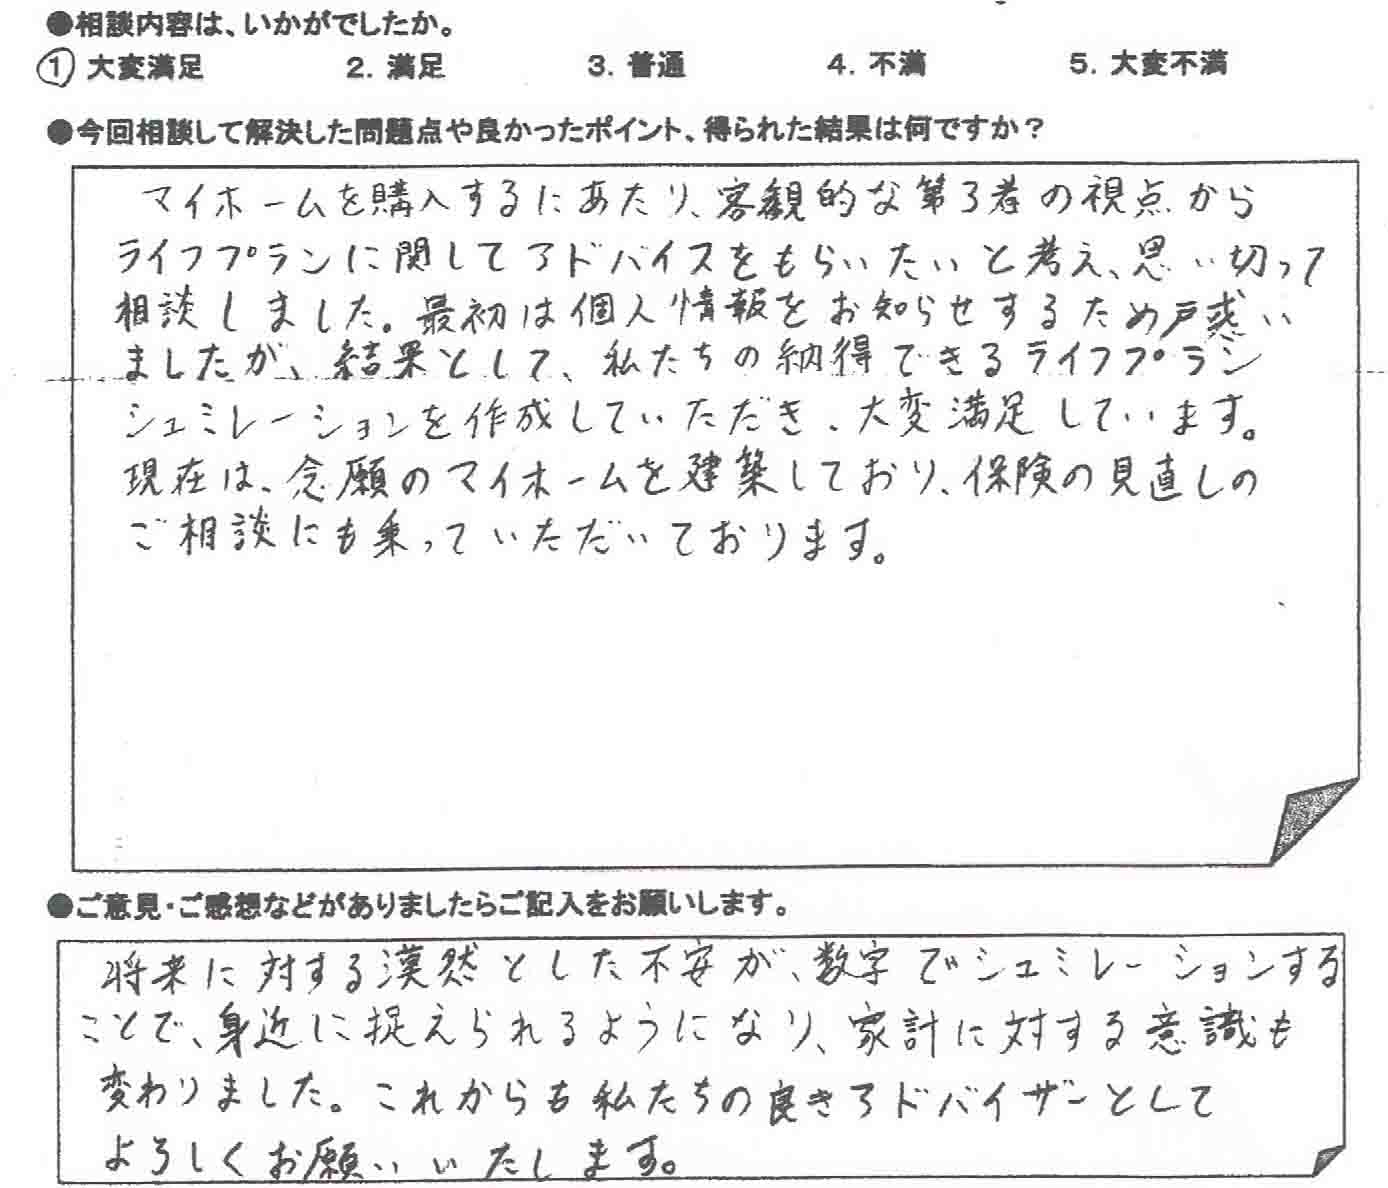 ●相談内容は、いかがでしたか。
① 大変満足 2. 満足 3. 普通 4. 不満 5. 大変不満
●今回相談して解決した問題点や良かったポイント、得られた結果は何ですか？
マイホームを購入するにあたり、客観的な第3者の視点から
ライフプランに関してアドバイスをもらいたいと考え、思い切って
相談しました。最初は個人情報をお知らせするため戸惑い
ましたが、結果として、私たちの納得できるライフプラン
シュミレーションを作成していただき、大変満足しています。
現在は、念願のマイホームを建築しており、保険の見直しの
ご相談にも乗っていただいております。
●ご意見・ご感想などがありましたらご記入をお願いします。
将来に対する漠然とした不安が、数字でシュミレーションする
ことで、身近に捉えられるようになり、家計に対する意識も
変わりました。これからも私たちの良きアドバイザーとして
よろしくお願いいたします。